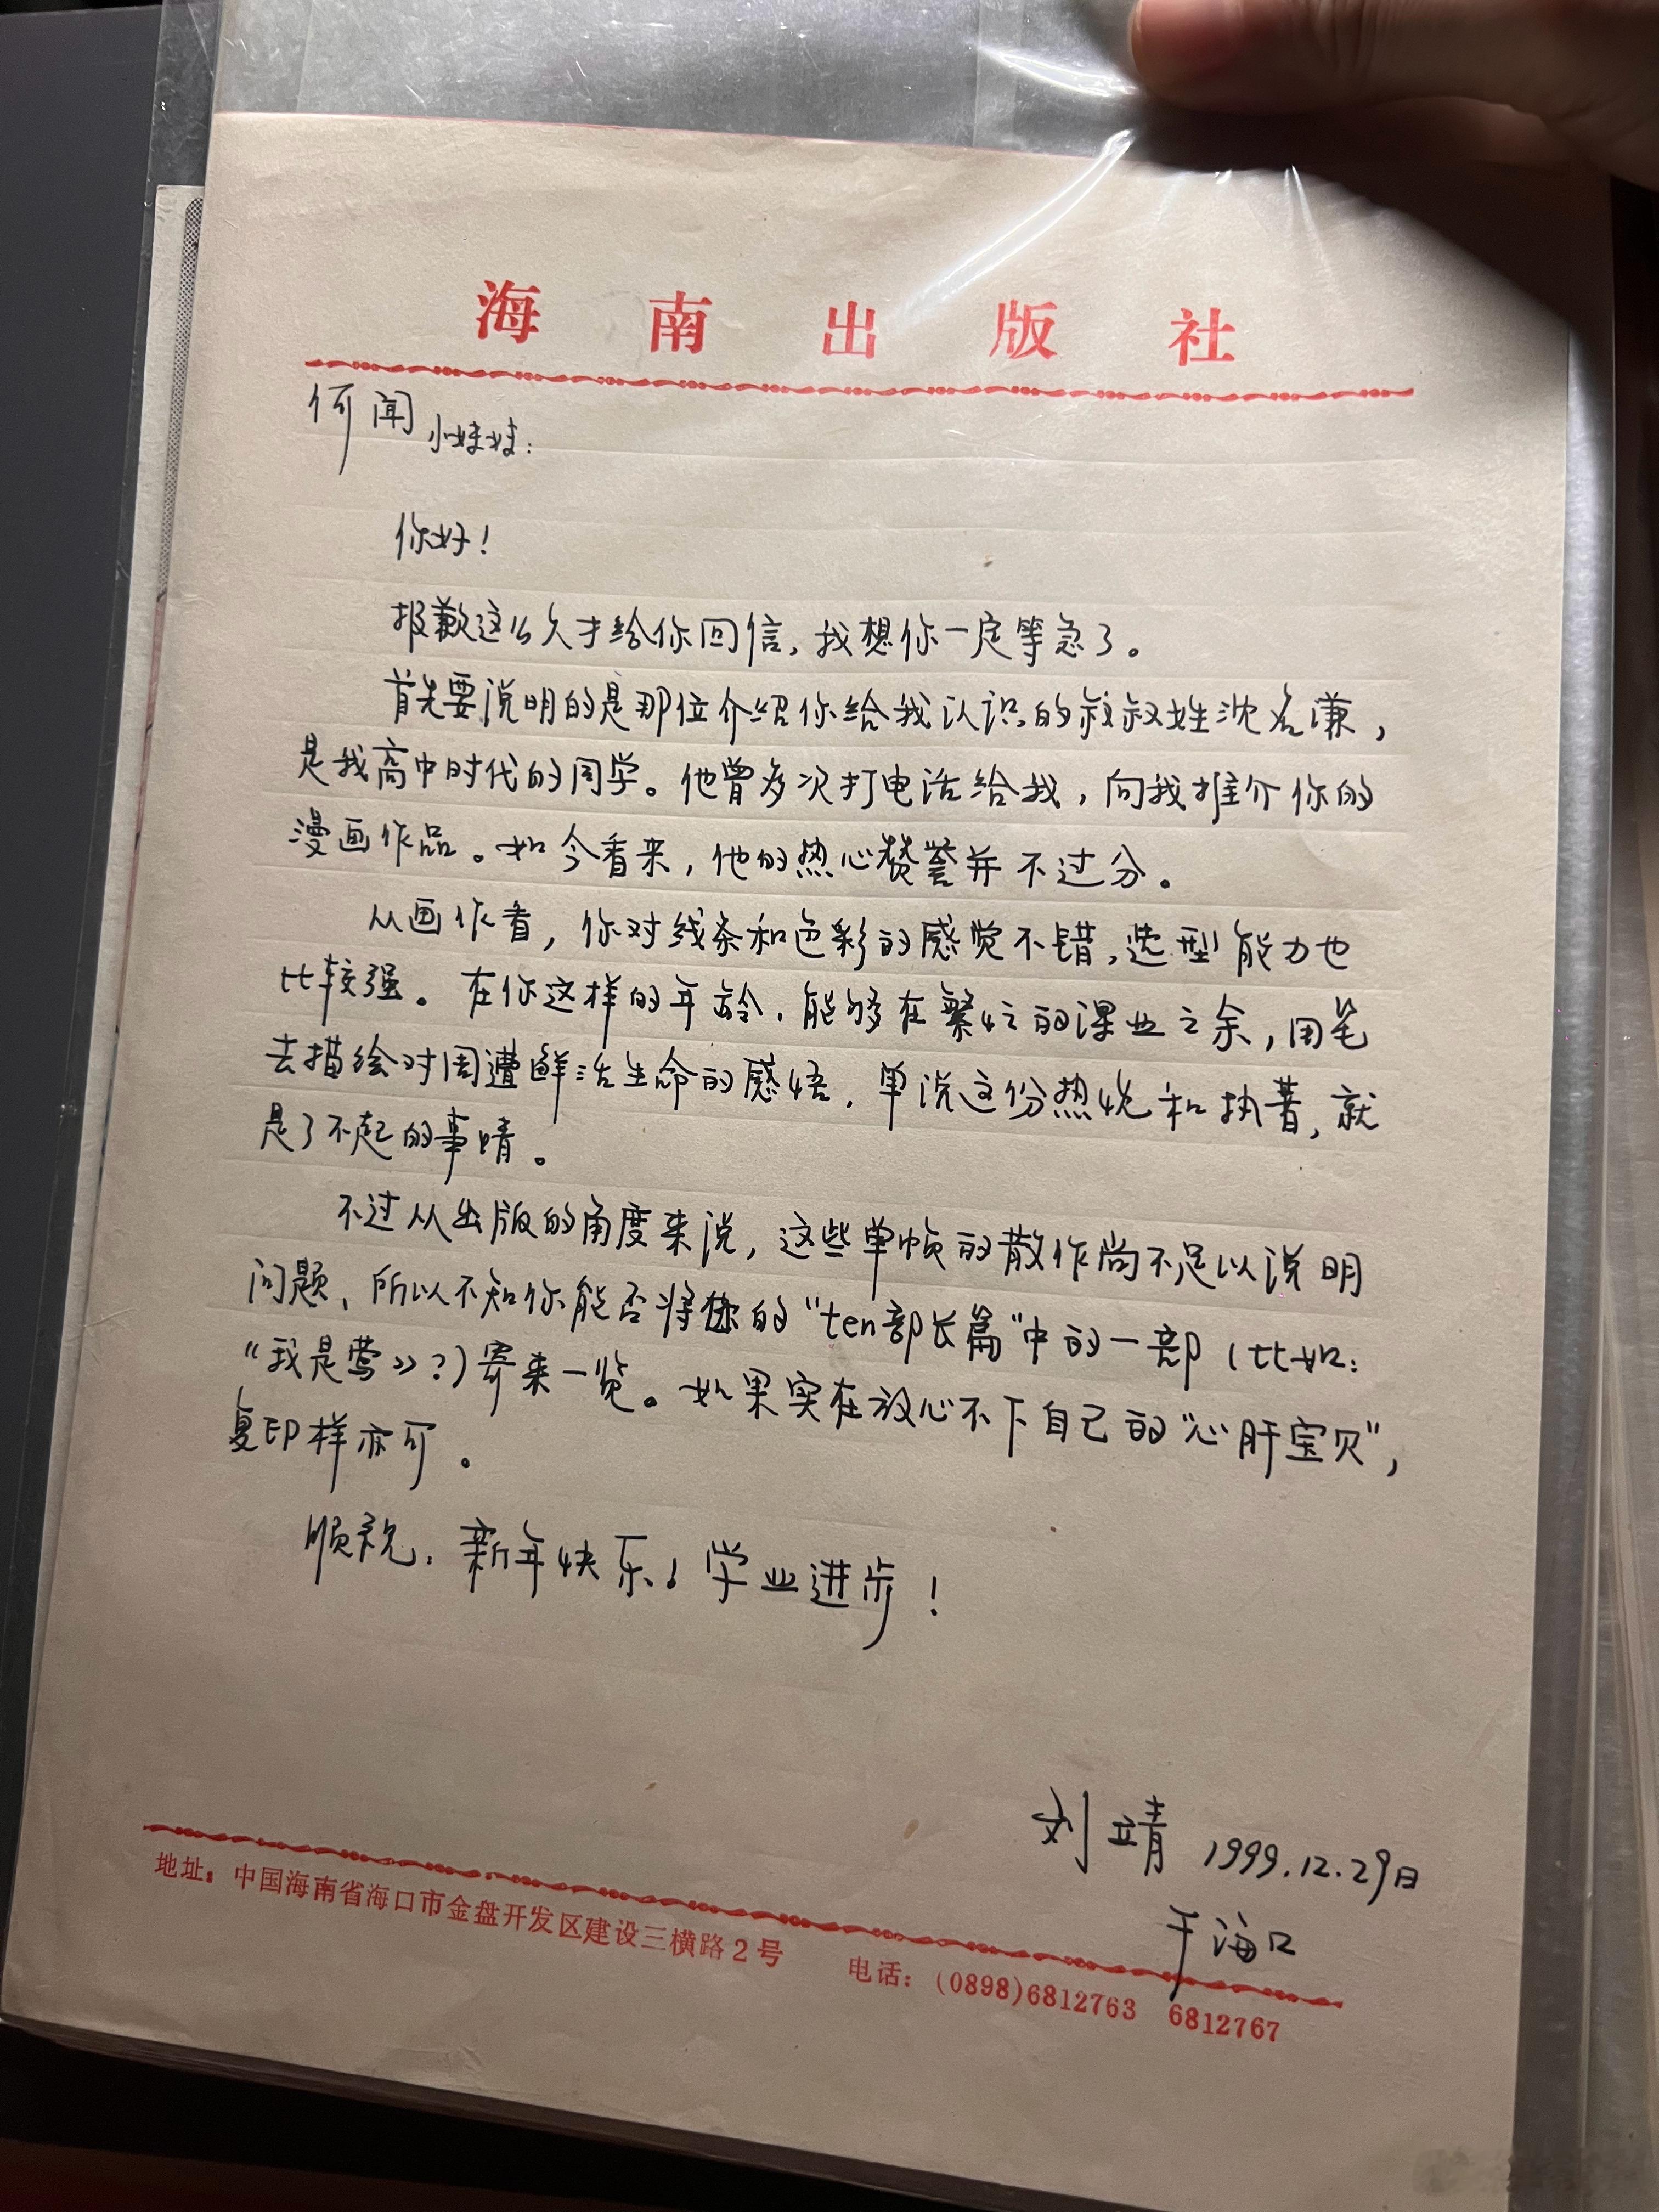 海南出版社
何闻小娃娃：
你好！
报歉这么久才给你回信，我想你一定等急了。
首先要说明的是那位介绍你给我认识的叔叔姓沈名谦，
是我高中时代的同学。他曾多次打电话给我，向我推介你的
漫画作品。如今看来，他的热心赞誉并不过分。
从画作看，你对线条和色彩的感觉不错，造型能力也
比较强。在你这样的年龄，能够在繁忙的课业之余，用笔
去描绘对周遭鲜活生命的感悟，单说这份热忱和执著，就
是了不起的事情。
不过从出版的角度来说，这些单帧的散作尚不足以说明
问题，所以不知你能否将你的“ten部长篇”中的一部（比如：
《我是莺》？）寄来一览。如果实在放心不下自己的“心肝宝贝”，
复印样亦可。
顺祝：新年快乐！学业进步！
刘靖 1999.12.29日
于海口
地址：中国海南省海口市金盘开发区建设三横路2号 电话：(0898)6812763 6812767